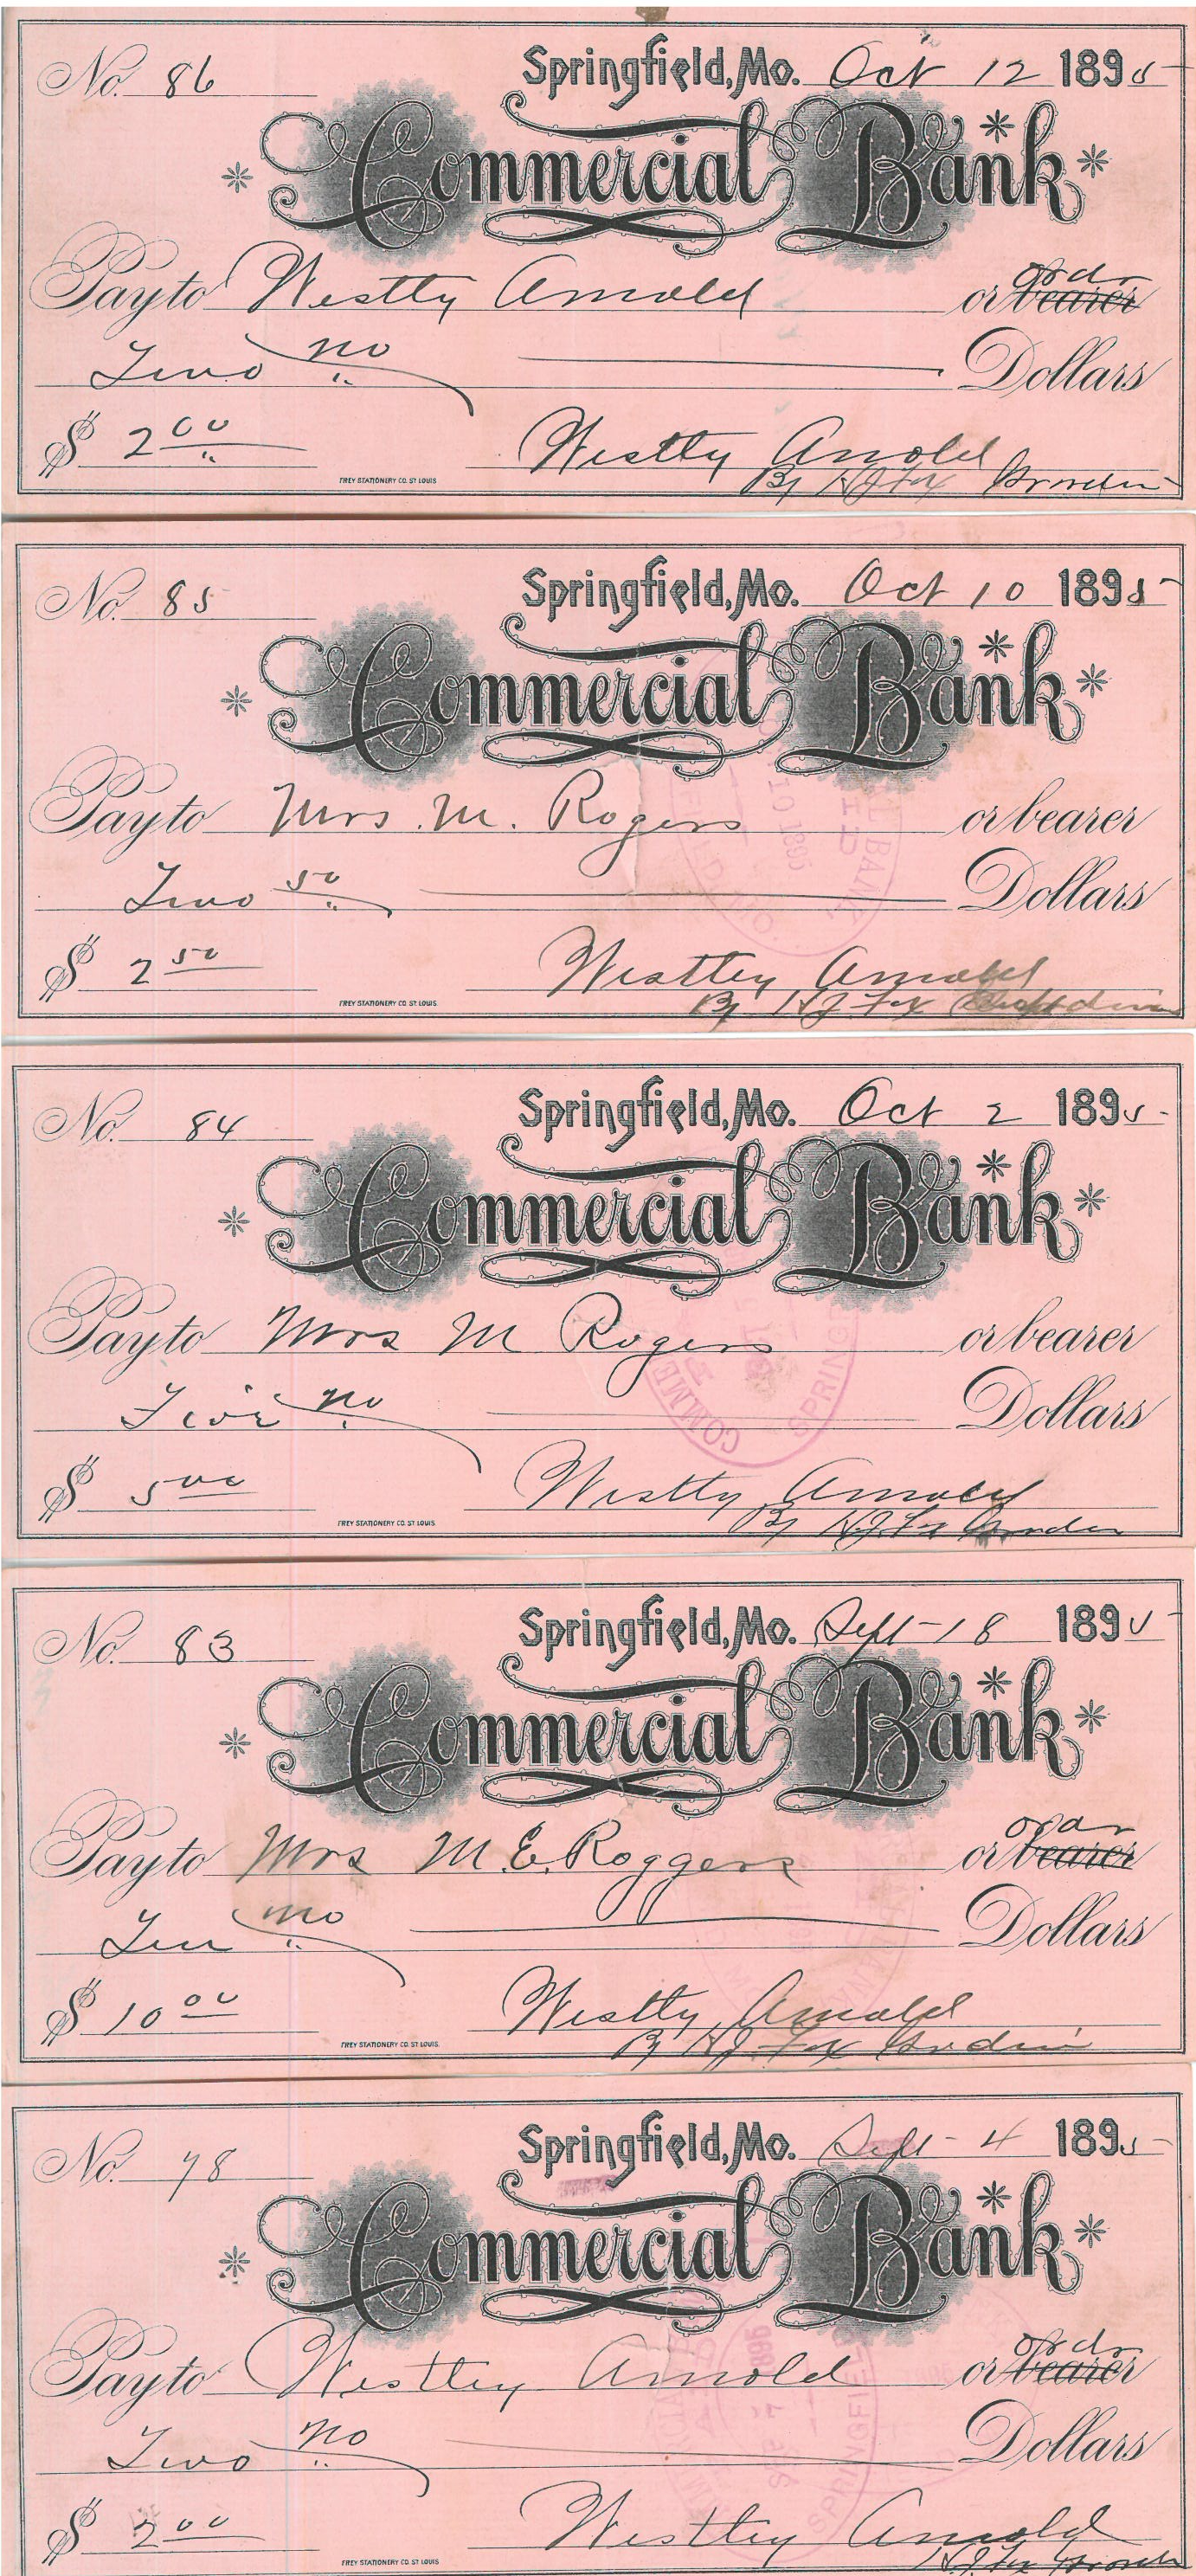 No. 86
Springfield, Mo. Oct 12 1895
Commercial Bank
Pay to Westley Arnold or bearer ordr
Two no Dollars
$ 2 00
Westley Arnold
By H J Fox
FREY STATIONERY CO. ST LOUIS
No. 85
Springfield, Mo. Oct 10 1895
Commercial Bank
Pay to Mrs. M. Rogers or bearer
Two 50 Dollars
$ 2 50
Westley Arnold
By H J Fox
FREY STATIONERY CO. ST LOUIS
No. 84
Springfield, Mo. Oct 2 1895
Commercial Bank
Pay to Mrs M Rogers or bearer
Five no Dollars
$ 5 00
Westley Arnold
By H J Fox
FREY STATIONERY CO. ST LOUIS
No. 83
Springfield, Mo. Sept - 18 1895
Commercial Bank
Pay to Mrs M. E. Roggers or bearer ordr
Ten no Dollars
$ 10 00
Westley Arnold
By H J Fox
FREY STATIONERY CO. ST LOUIS
No. 78
Springfield, Mo. Sept - 4 1895
Commercial Bank
Pay to Westley Arnold or bearer ordr
Two no Dollars
$ 2 00
Westley Arnold
H J Fox
FREY STATIONERY CO. ST LOUIS